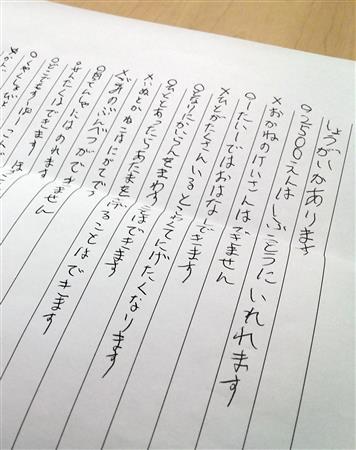 しょうがいがあります
○2500えんは いれれます
×おかねのけいさんはできません
○1たい1ではおはなしできます
×ひとがたさんいると にげたくなります
○となりにかいらんをまわす はできます
○ひとにあったらあたまをさげることはできます
×いぬとかねこはにがてです
×ごみのぶんべつができません
○じてんしゃにはのれます
○せんたくはできます